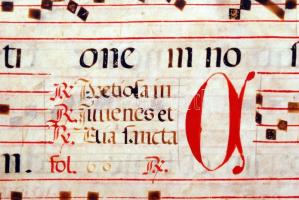 ti one in no
℟. Pretiosa in
℟. Iuuenes et
℟. Eua sancta
fol. 60 ℟.
n.